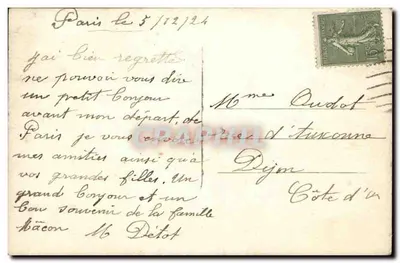 Paris le 5/12/24
j'ai bien regretté
ne pouvoir vous dire
un petit bonjour
avant mon départ, de
Paris je vous
mes amitiés ainsi qu'à
vos grandes filles. Un
grand bonjour et un
bon souvenir de la famille
Mâcon M Détot
Mme Oudot
Rue d'Auxonne
Dijon
Côte d'Or